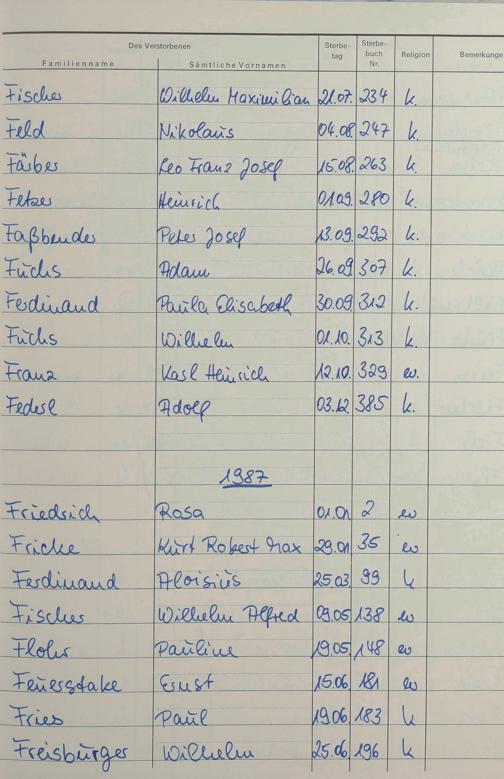 Des Verstorbenen Sterbe-tag Sterbe-buch Nr. Religion Bemerkunge
Familienname Sämtliche Vornamen
Fischer Wilhelm Maximilian 21.07. 234 k.
Feld Nikolaus 04.08. 247 k.
Färber Leo Franz Josef 15.08. 263 k.
Fetzer Heinrich 01.09. 280 k.
Faßbender Peter Josef 13.09. 292 k.
Fuchs Adam 26.09 307 k.
Ferdinand Paula Elisabeth 30.09. 312 k.
Fuchs Wilhelm 01.10. 313 k.
Franz Karl Heinrich 12.10. 329 ev.
Federl Adolf 03.12. 385 k.
1987
Friedrich Rosa 01.01 2 ev
Fricke Kurt Robert Max 29.01 35 ev
Ferdinand Aloisius 25.03 99 k
Fischer Wilhelm Alfred 09.05 138 ev
Flohr Pauline 19.05 148 ev
Feuerstake Ernst 15.06 181 ev
Fries Paul 19.06 183 k
Freisburger Wilhelm 25.06 196 k